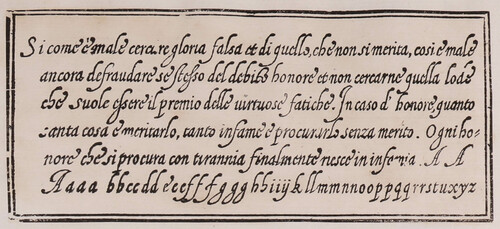 Si come è male cercare gloria falsa et di quello, che non si merita, cosi è male
ancora defraudare se stesso del debito honore et non cercarne quella lode
che suole essere il premio delle uirtuose fatiche. In caso d'honore, quanto
santa cosa è meritarlo, tanto infame è procurarlo senza merito. Ogni ho-
nore che si procura con tirannia finalmente riesce in infamia. A A
A a a a b b c c d d e e c f f f f g g g h h i i i j k l l m m n n o o p p q q r r s t u x y z